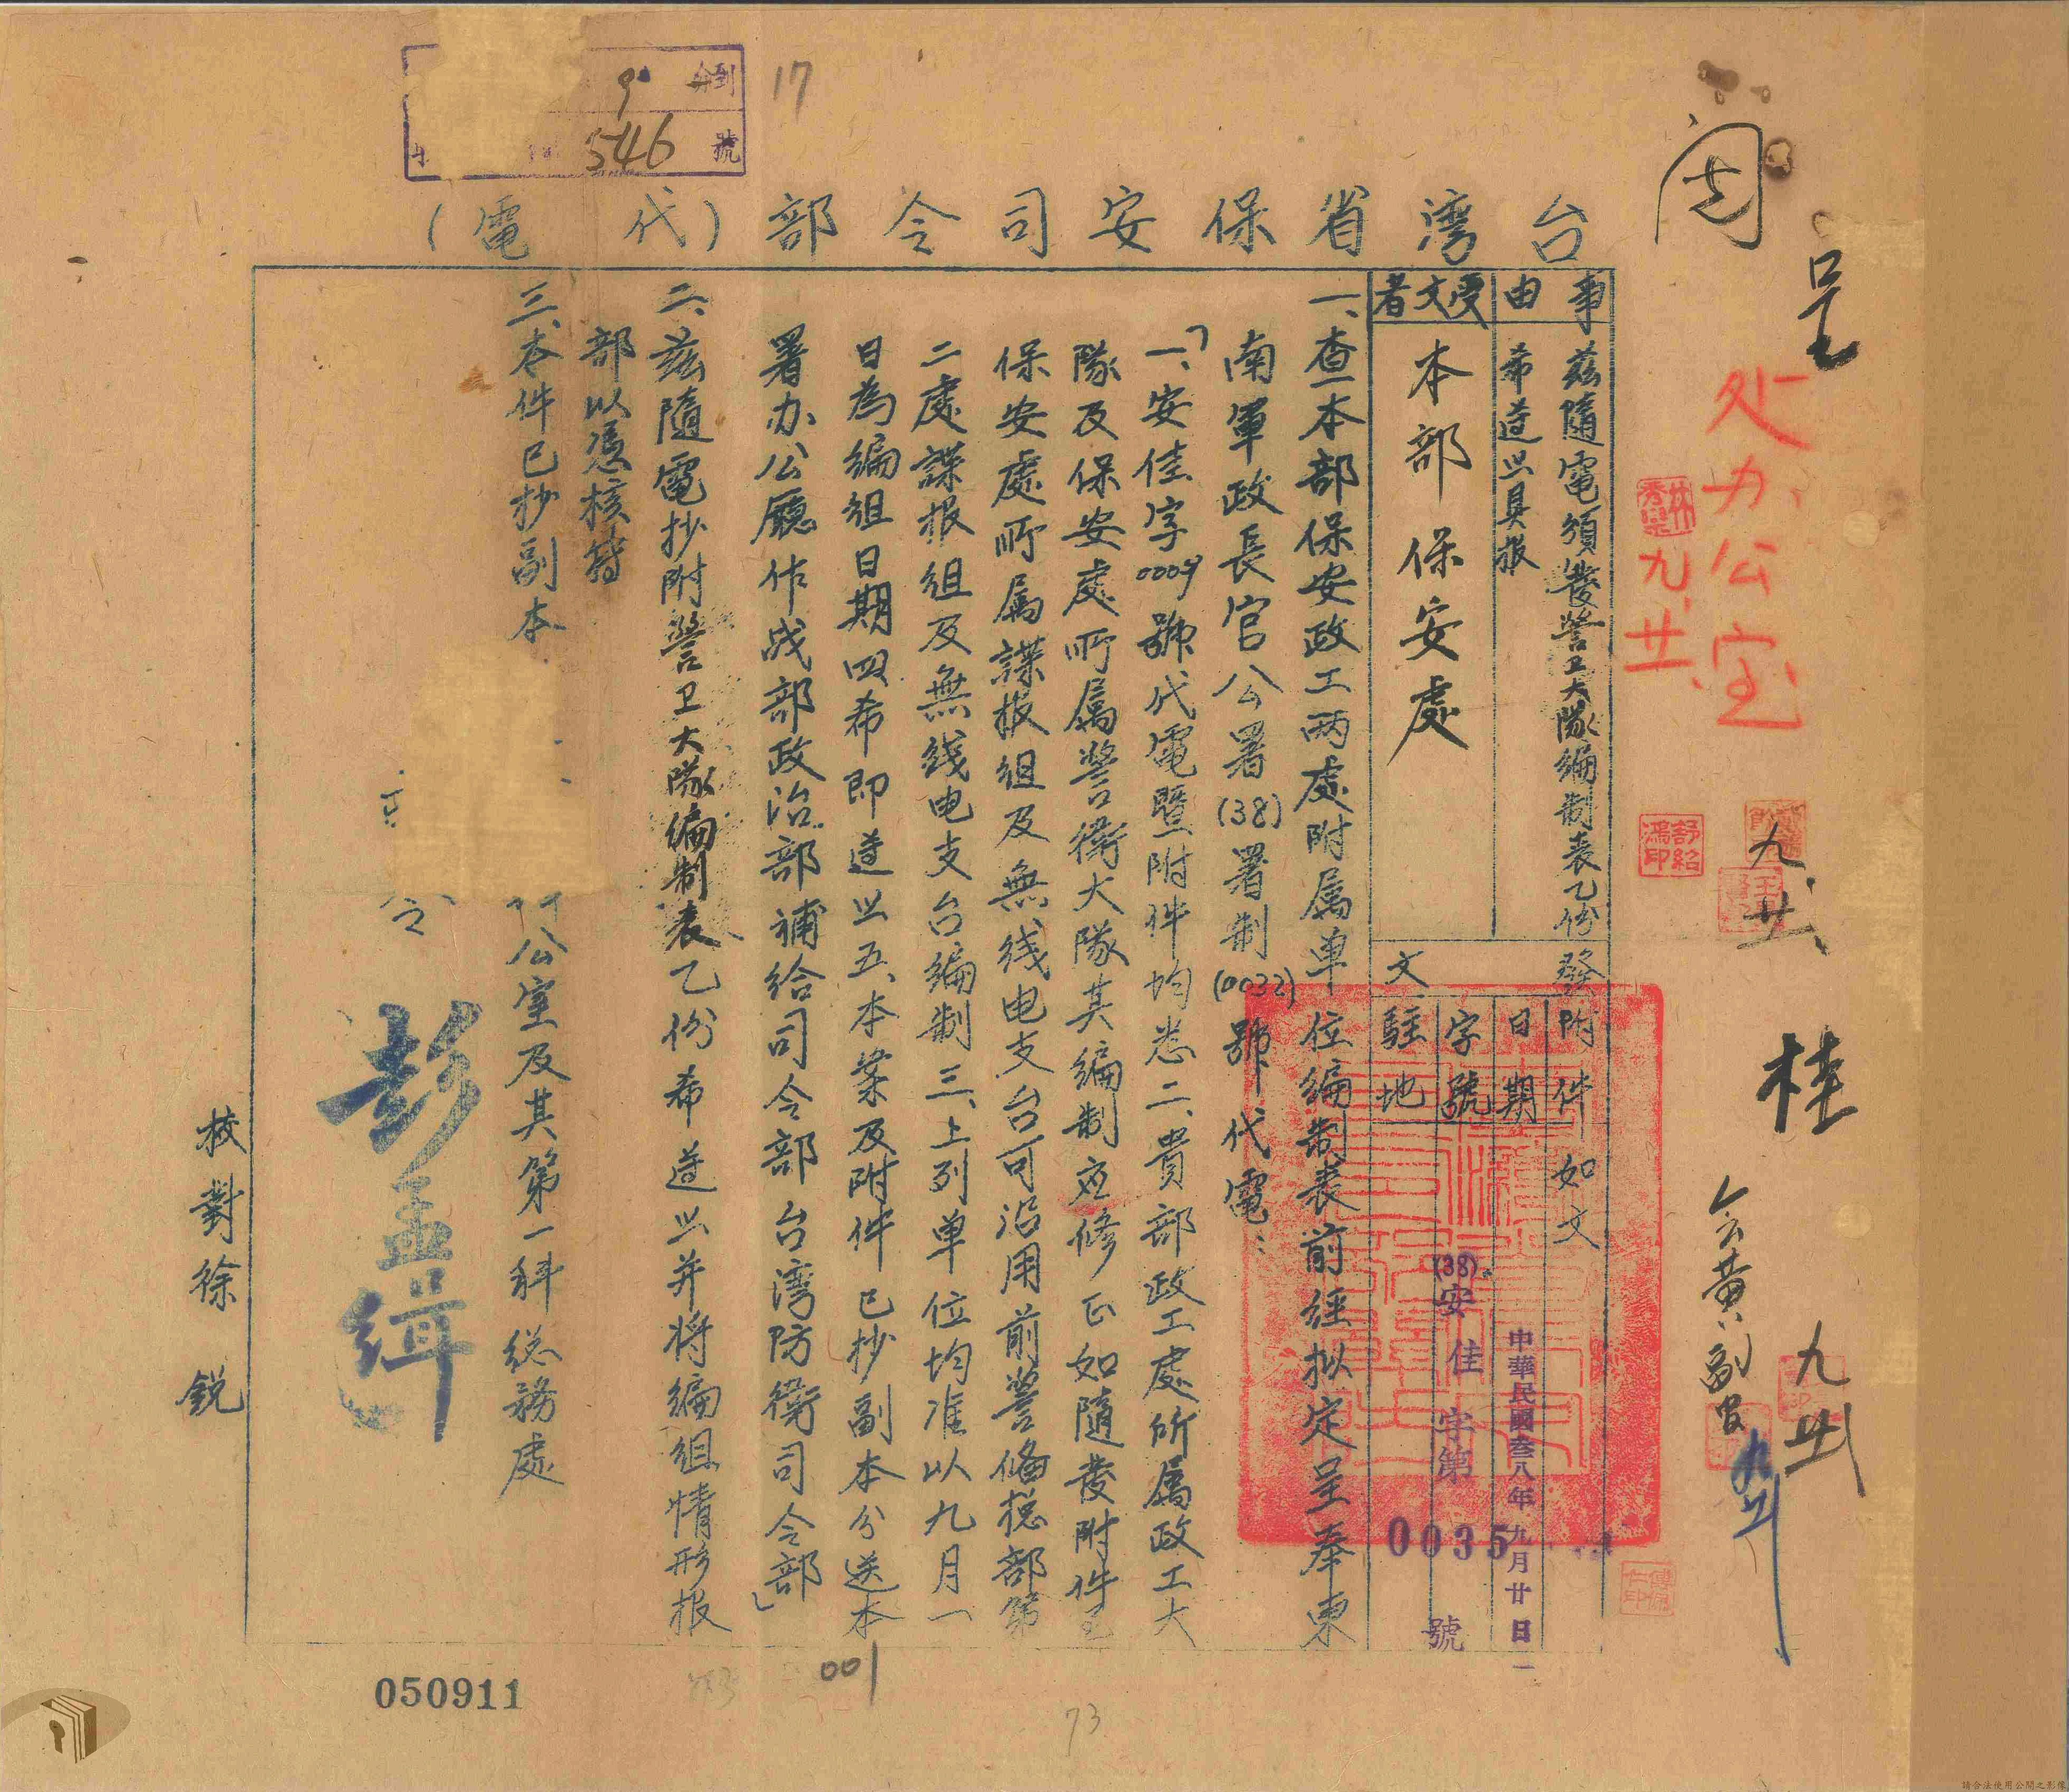 到
9
546
號
17
台湾省保安司令部(代電)
閱
呈
处办公室
九、廿一、
林秀欒
舒紹鴻印
九、廿一、
桂
九、廿一
事由
茲隨電頒發警卫大隊編制表乙份
希遵照具报
受文者
本部保安處
發文
附件
如文
日期
中華民國叁八年九月廿一日
字號
(38)安佳字第0035號
駐地
一、查本部保安政工兩處附属单位編制表前經拟定呈奉東
南軍政長官公署(38)署制(0032)號代電：
「一、安佳字0009號代電暨附件均悉二、貴部政工處所属政工大
隊及保安處所属警衛大隊其編制应修正如隨發附件至
保安處所属諜报组及無线电支台可沿用前警备總部第
二處諜报组及無线电支台編制三、上列单位均准以九月一
日為編组日期四希即遵照五、本案及附件已抄副本分送本
署办公廳作战部政治部補給司令部台湾防衛司令部」
二、茲隨電抄附警卫大隊編制表乙份希遵照并将編组情形报
部以憑核转
三、本件已抄副本
公室及其第一科總務處
令
彭孟緝
校對徐銳
050911
001
73
請合法使用公開之影像